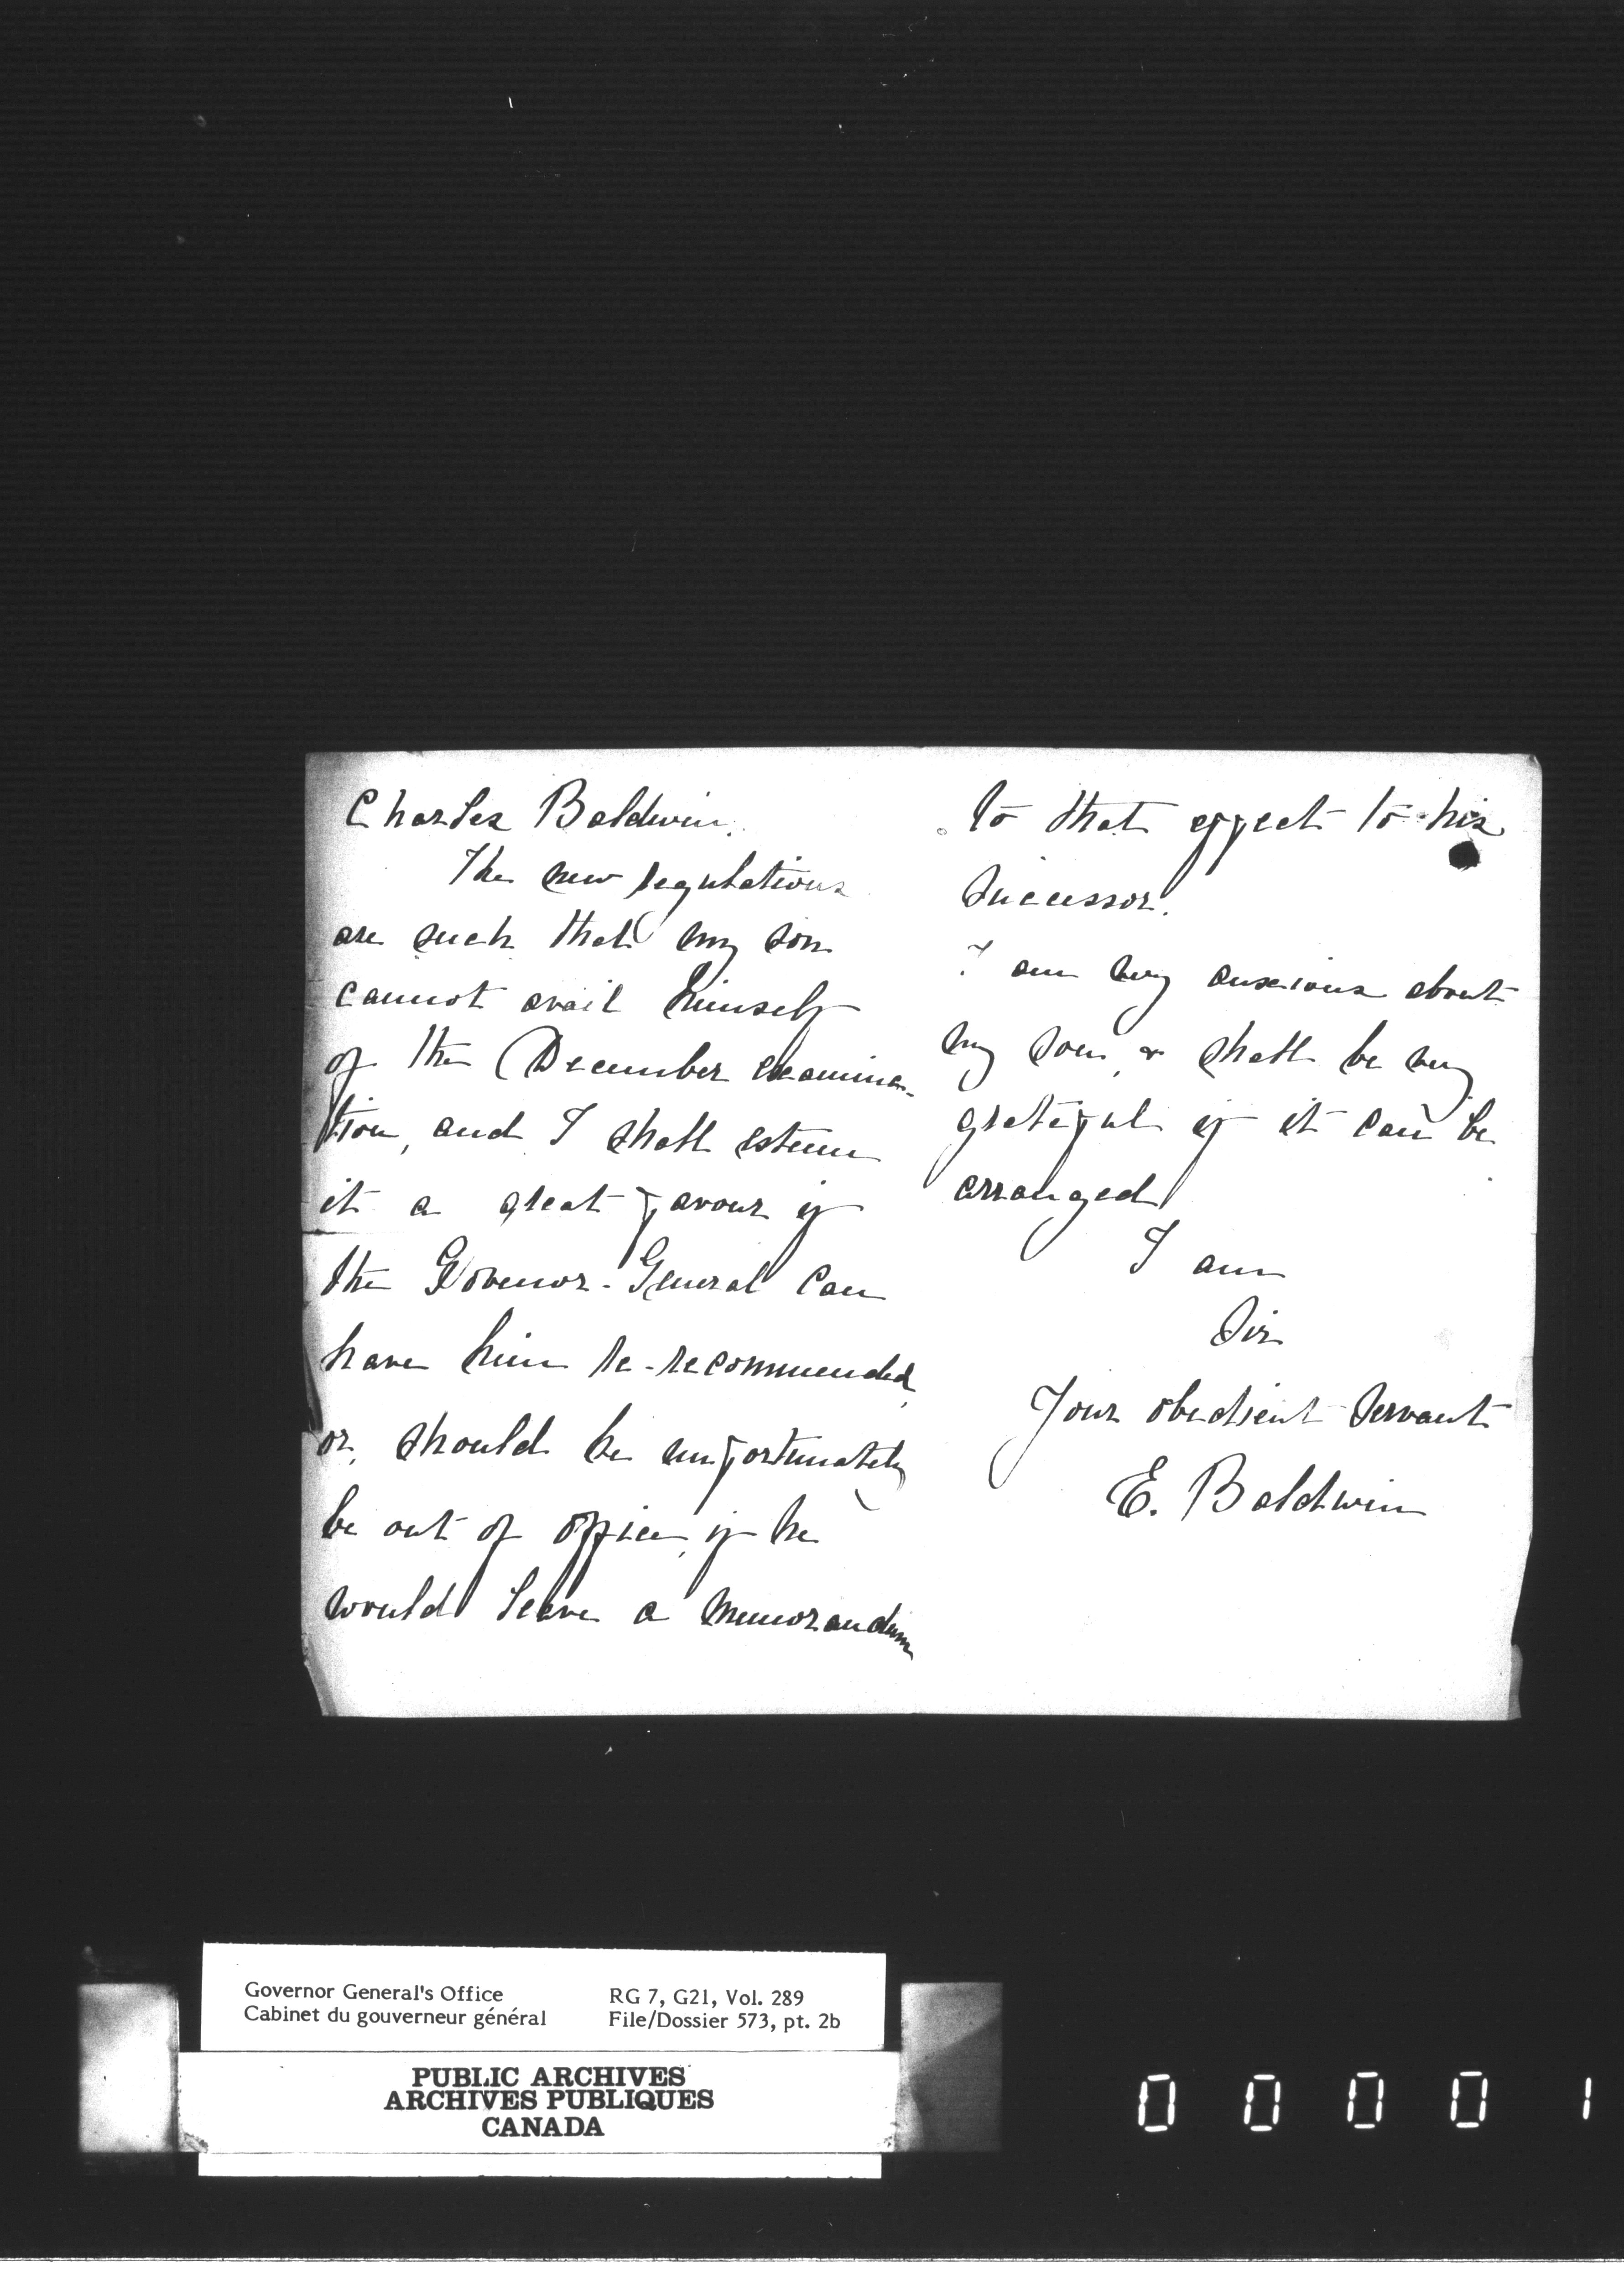 Charles Baldwin.
The new regulations
are such that my son
cannot avail himself
of the December examina-
tion, and I shall esteem
it a great favour if
the Govenor-General can
have him re-recommended,
or, should he unfortunately
be out of office, if he
would leave a memorandum
to that effect to his
successor.
I am very anxious about
my son, & shall be very
grateful if it can be
arranged
I am
Sir
Your obedient Servant
E. Baldwin
Governor General's Office
Cabinet du gouverneur général
RG 7, G21, Vol. 289
File/Dossier 573, pt. 2b
PUBLIC ARCHIVES
ARCHIVES PUBLIQUES
CANADA
0 0 0 0 1